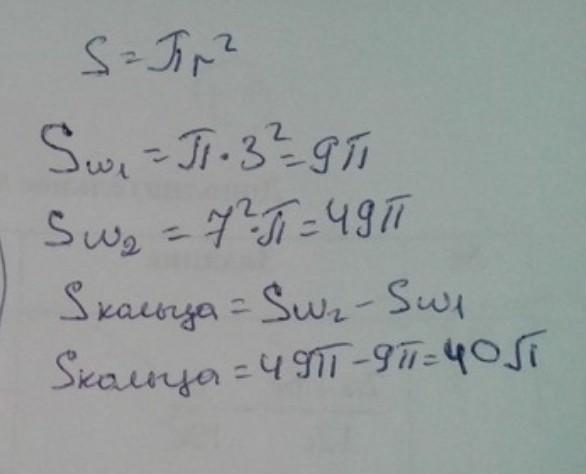 S = πr²
Sω₁ = π · 3² = 9π
Sω₂ = 7² · π = 49π
Sкольца = Sω₂ - Sω₁
Sкольца = 49π - 9π = 40π